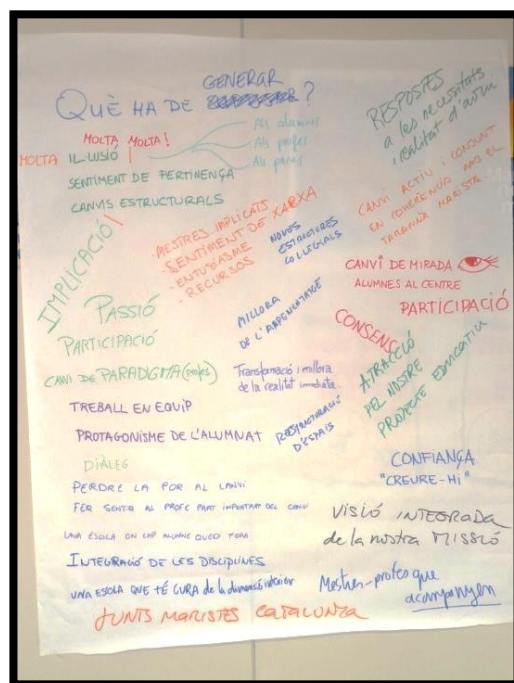 GENERAR
QUÈ HA DE ?
MOLTA MOLTA!
MOLTA IL·LUSIÓ !
Als alumnes
Als profes
Als pares
SENTIMENT DE PERTINENÇA
CANVIS ESTRUCTURALS
IMPLICACIÓ!
· MESTRES IMPLICATS
· SENTIMENT DE XARXA
· ENTUSIASME
· RECURSOS
NOVES
ESTRUCTURES
COL·LEGIALS
RESPOSTES
a les necessitats
i realitat d'avui
CANVI ACTIU i CONJUNT
EN COHERÈNCIA AMB EL
TARANNÀ MARISTA
CANVI DE MIRADA
ALUMNES AL CENTRE
PARTICIPACIÓ
PASSIÓ
PARTICIPACIÓ
MILLORA
DE L'APRENENTATGE
CONSENS
CANVI DE PARADIGMA (profes)
Transformació i millora
de la realitat immediata
ATRACCIÓ
PEL NOSTRE
PROJECTE EDUCATIU
TREBALL EN EQUIP
PROTAGONISME DE L'ALUMNAT
REESTRUCTURACIÓ
D'ESPAIS
DIÀLEG
PERDRE LA POR AL CANVI
FER SENTIR AL PROFE PART IMPORTANT DEL CANVI
UNA ESCOLA ON CAP ALUMNE QUEDI FORA
INTEGRACIÓ DE LES DISCIPLINES
UNA ESCOLA QUE TÉ CURA de la dimensió interior
CONFIANÇA
"CREURE-HI"
VISIÓ INTEGRADA
de la nostra MISSIÓ
Mestres-profes que
acompanyen
JUNTS MARISTES CATALUNYA